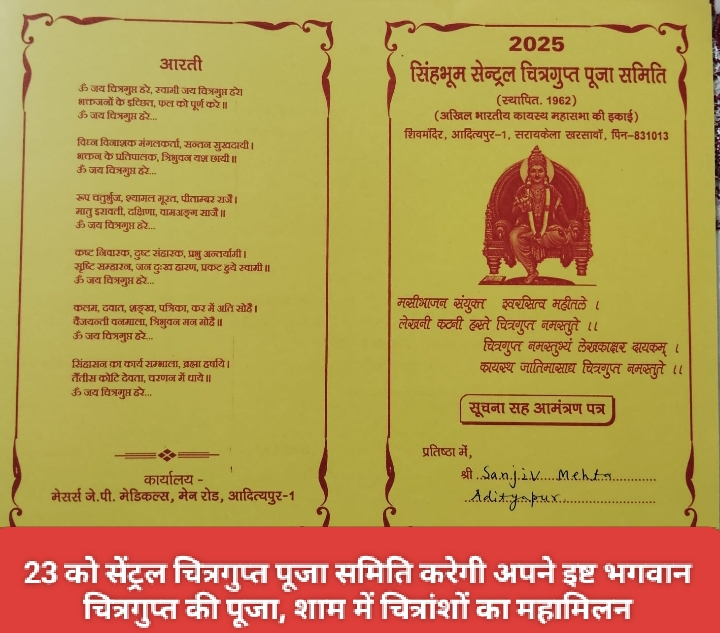 आरती
ॐ जय चित्रगुप्त हरे, स्वामी जय चित्रगुप्त हरे।
भक्तजनों के इच्छित, फल को पूर्ण करे॥
ॐ जय चित्रगुप्त हरे...
विघ्न विनाशक मंगलकर्ता, सन्तन सुखदायी।
भक्तन के प्रतिपालक, त्रिभुवन यश छायी॥
ॐ जय चित्रगुप्त हरे...
रूप चतुर्भुज, श्यामल मूरत, पीताम्बर राजै।
मातु इरावती, दक्षिणा, वामअङ्ग साजै॥
ॐ जय चित्रगुप्त हरे...
कष्ट निवारक, दुष्ट संहारक, प्रभु अन्तर्यामी।
सृष्टि सम्हारन, जन दुःख हारण, प्रकट हुये स्वामी॥
ॐ जय चित्रगुप्त हरे...
कलम, दवात, शङ्ख, पत्रिका, कर में अति सोहै।
वैजयन्ती वनमाला, त्रिभुवन मन मोहै॥
ॐ जय चित्रगुप्त हरे...
सिंहासन का कार्य सम्भाला, ब्रह्मा हर्षाये।
तैंतीस कोटि देवता, चरणन में धाये॥
ॐ जय चित्रगुप्त हरे...
कार्यालय -
मेसर्स जे.पी. मेडिकल्स, मेन रोड, आदित्यपुर-1
2025
सिंहभूम सेन्ट्रल चित्रगुप्त पूजा समिति
(स्थापित. 1962)
(अखिल भारतीय कायस्थ महासभा की इकाई)
शिवमंदिर, आदित्यपुर-1, सरायकेला खरसावाँ, पिन-831013
मसीभाजन संयुक्त श्वरसित्व महीतले ।
लेखनी कटनी हस्ते चित्रगुप्त नमस्तुते ।।
चित्रगुप्त नमस्तुभ्यं लेखकाक्षर दायकम् ।
कायस्थ जातिमासाद्य चित्रगुप्त नमस्तुते ।।
सूचना सह आमंत्रण पत्र
प्रतिष्ठा में,
श्री Sanjiv Mehta
Adityapur
23 को सेंट्रल चित्रगुप्त पूजा समिति करेगी अपने इष्ट भगवान
चित्रगुप्त की पूजा, शाम में चित्रांशों का महामिलन